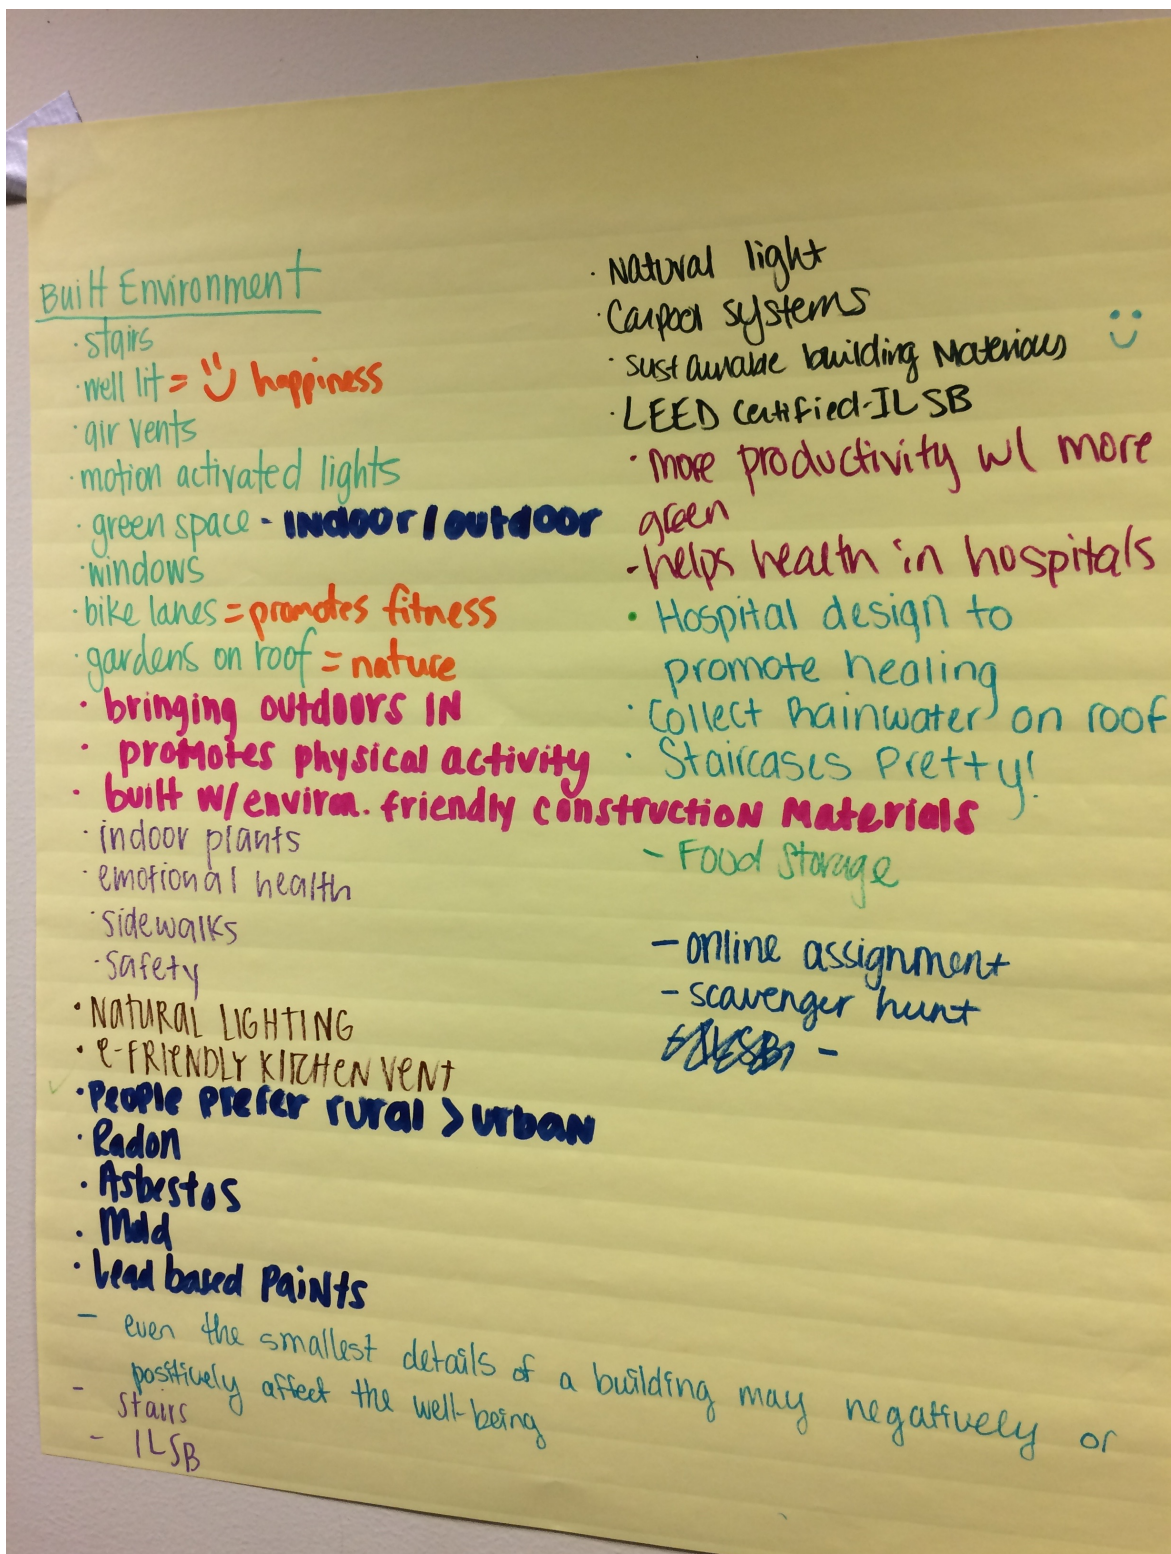 Built Environment
· stairs
· well lit = happiness
· air vents
· motion activated lights
· green space - INDOOR / OUTDOOR
· windows
· bike lanes = promotes fitness
· gardens on roof = nature
· bringing outdoors IN
· promotes physical activity
· built w/ environ. friendly construction Materials
· indoor plants
· emotional health
· sidewalks
· safety
· NATURAL LIGHTING
· e-FRIENDLY KITCHEN VENT
· People prefer rural > urban
· Radon
· Asbestos
· Mold
· Lead based Paints
- even the smallest details of a building may negatively or
positively affect the well-being
- stairs
- ILSB
· Natural light
· Carpool systems
· sustainable building Materials
· LEED Certified-ILSB
· more productivity w/ more
green
- helps health in hospitals
· Hospital design to
promote healing
· Collect Rainwater on roof
· Staircases Pretty!
- Food Storage
- online assignment
- scavenger hunt